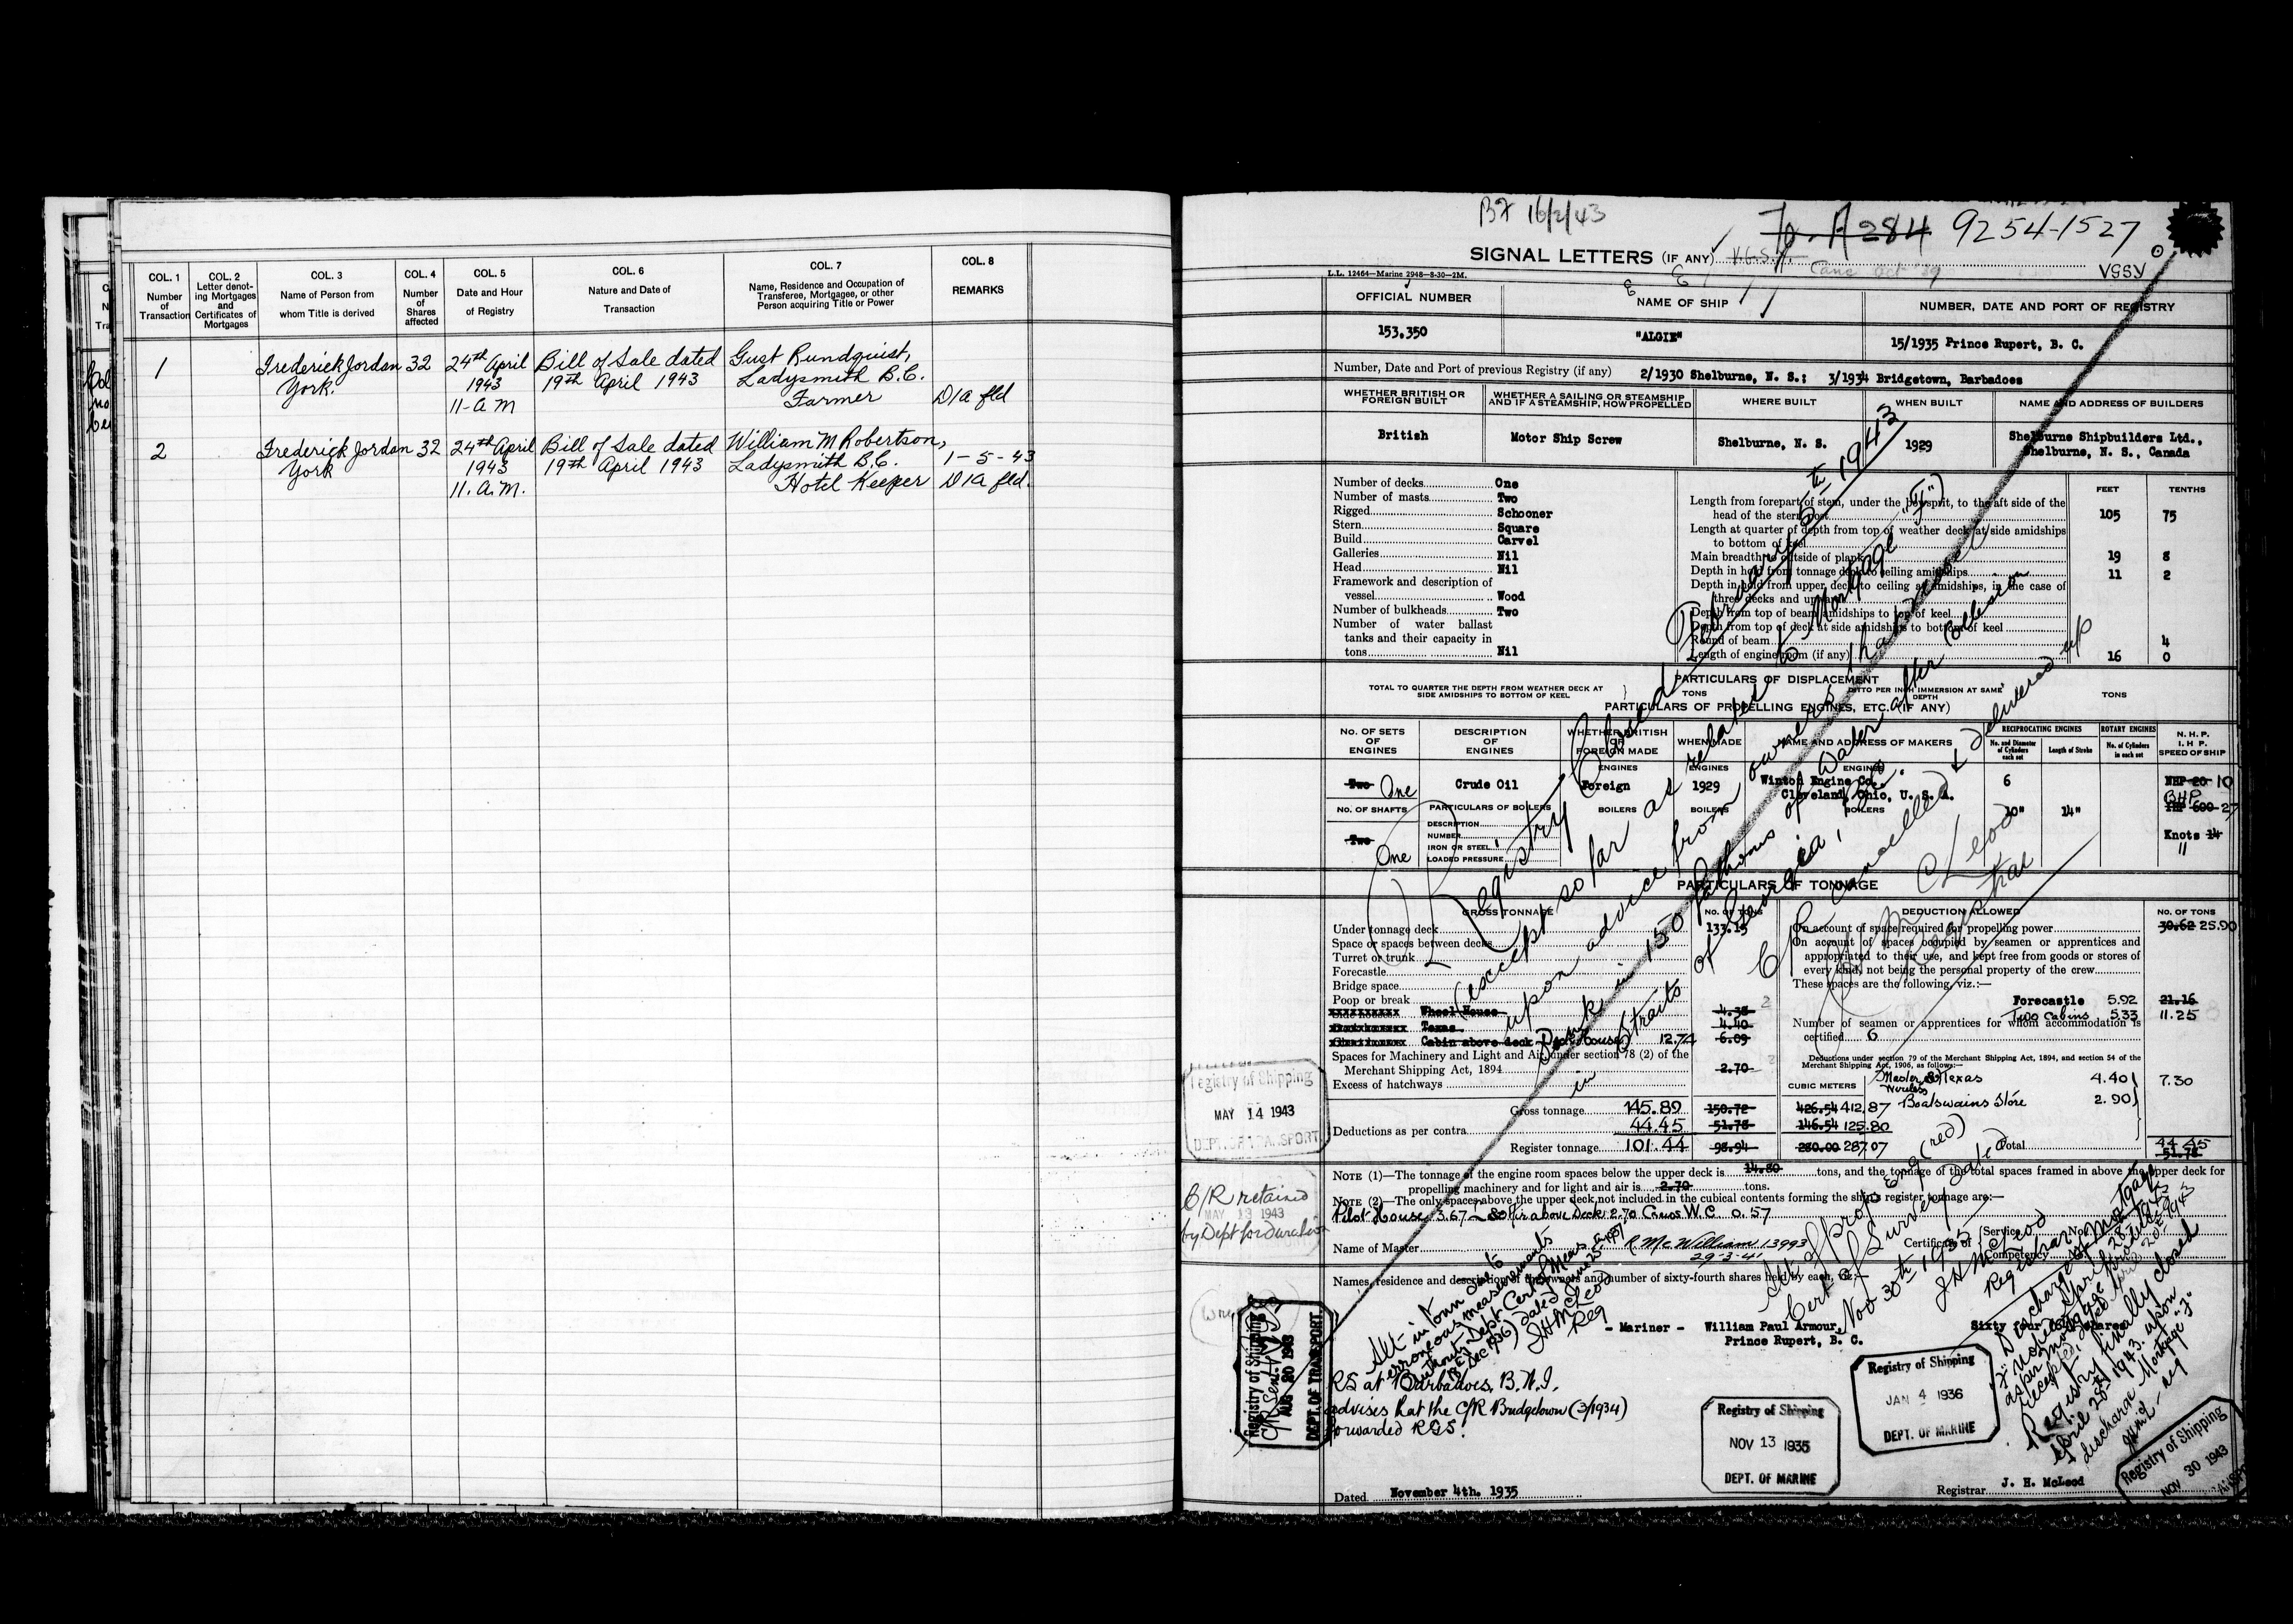 COL. 1 Number of Transaction
COL. 2 Letter denoting Mortgages and Certificates of Mortgages
COL. 3 Name of Person from whom Title is derived
COL. 4 Number of Shares affected
COL. 5 Date and Hour of Registry
COL. 6 Nature and Date of Transaction
COL. 7 Name, Residence and Occupation of Transferee, Mortgagee, or other Person acquiring Title or Power
COL. 8 REMARKS
1 Frederick Jordan 32 24th April Bill of Sale dated Gust Rundquist,
York. 1943 19th April 1943 Ladysmith B.C.
11-A M Farmer D/A fld
2 Frederick Jordan 32 24th April Bill of Sale dated William M Robertson,
York 1943 19th April 1943 Ladysmith B.C. 1-5-43
11. A.M. Hotel Keeper D/A fld.
16/2/43
284 9254-1527
SIGNAL LETTERS (IF ANY)
VGSY
L.L. 12464—Marine 2948—8-30—2M.
OFFICIAL NUMBER NAME OF SHIP NUMBER, DATE AND PORT OF REGISTRY
153,350 "ALGIE" 15/1935 Prince Rupert, B. C.
Number, Date and Port of previous Registry (if any) 2/1930 Shelburne, N. S.; 3/1934 Bridgetown, Barbadoes
WHETHER BRITISH OR FOREIGN BUILT
WHETHER A SAILING OR STEAMSHIP AND IF A STEAMSHIP, HOW PROPELLED
WHERE BUILT WHEN BUILT NAME AND ADDRESS OF BUILDERS
British Motor Ship Screw Shelburne, N. S. 1929 Shelburne Shipbuilders Ltd.,
Shelburne, N. S., Canada
Number of decks One
Number of masts Two
Rigged Schooner
Stern Square
Build Carvel
Galleries Nil
Head Nil
Framework and description of vessel Wood
Number of bulkheads Two
Number of water ballast tanks and their capacity in tons Nil
FEET TENTHS
Length from forepart of stem, under the bowsprit, to the aft side of the head of the stern post 105 75
Length at quarter of depth from top of weather deck at side amidships to bottom of keel
Main breadth to outside of plank 19 8
Depth in hold from tonnage deck to ceiling amidships 11 2
Depth in hold from upper deck to ceiling at amidships, in the case of three decks and upwards
Depth from top of beam amidships to top of keel
Depth from top of deck at side amidships to bottom of keel
Round of beam 4
Length of engine room (if any) 16 0
PARTICULARS OF DISPLACEMENT
TOTAL TO QUARTER THE DEPTH FROM WEATHER DECK AT SIDE AMIDSHIPS TO BOTTOM OF KEEL TONS DITTO PER INCH IMMERSION AT SAME DEPTH TONS
PARTICULARS OF PROPELLING ENGINES, ETC. (IF ANY)
NO. OF SETS OF ENGINES
DESCRIPTION OF ENGINES
WHETHER BRITISH OR FOREIGN MADE
WHEN MADE
NAME AND ADDRESS OF MAKERS
RECIPROCATING ENGINES
No. and Diameter of Cylinders each set
Length of Stroke
ROTARY ENGINES
No. of Cylinders in each set
N. H. P.
I. H. P.
SPEED OF SHIP
ENGINES ENGINES ENGINES
Two One Crude Oil Foreign 1929 Winton Engine Co., 6 NHP 20 10
Cleveland, Ohio, U. S. A.
NO. OF SHAFTS PARTICULARS OF BOILERS BOILERS BOILERS BOILERS 10" 14" BHP
IHP 600 27
DESCRIPTION
NUMBER
IRON OR STEEL
LOADED PRESSURE
Two One
Knots 14
11
PARTICULARS OF TONNAGE
GROSS TONNAGE NO. OF TONS DEDUCTION ALLOWED NO. OF TONS
Under tonnage deck 133.15
Space or spaces between decks
Turret or trunk
Forecastle
Bridge space
Poop or break
Wheel House 4.38
Texas 4.40
Cabin above deck Deck House 12.74 6.09
Spaces for Machinery and Light and Air, under section 78 (2) of the Merchant Shipping Act, 1894 2.70
Excess of hatchways
Gross tonnage 145.89 150.72 426.54 412.87
Deductions as per contra 44.45 51.78 146.54 125.80
Register tonnage 101.44 98.94 280.00 287.07
On account of space required for propelling power 30.62 25.90
On account of spaces occupied by seamen or apprentices and appropriated to their use, and kept free from goods or stores of every kind, not being the personal property of the crew
These spaces are the following, viz.:—
Forecastle 5.92 21.16
Two Cabins 5.33 11.25
Number of seamen or apprentices for whom accommodation is certified 6
Deductions under section 79 of the Merchant Shipping Act, 1894, and section 54 of the Merchant Shipping Act, 1906, as follows:—
CUBIC METERS Master & Texas 4.40 7.30
Wireless
Boatswains Store 2.90
Total 44.45
51.78
NOTE (1)—The tonnage of the engine room spaces below the upper deck is 14.80 tons, and the tonnage of the total spaces framed in above the upper deck for propelling machinery and for light and air is 2.70 tons.
NOTE (2)—The only spaces above the upper deck not included in the cubical contents forming the ship's register tonnage are:—
Pilot House 3.67 above Deck 2.70 Crews W.C. 0.57
Name of Master R McWilliam 13993
29-3-41
Certificate of Service Competency No.
Names, residence and description of the owners and number of sixty-fourth shares held by each, viz:—
- Mariner - William Paul Armour, Sixty four (64) Shares
Prince Rupert, B. C.
Registry Closed February 5th 1943
(except so far as related to Mortgage "F")
upon advice from owners that vessel
sank in 150 fathoms of water after collision
in Straits of Georgia.
C/R cancelled delivered up
JH McLeod
Registrar
Alt of prop Eng (red)
Cert of Survey dated
Nov 30th 1935
JH McLeod
Registrar
Alt in Tonn due to
erroneous measurements
Authority Dept Cert of Meas
Dec 1936) dated June 25-1937
JH McLeod
Reg
Discharge of Mortgage
Registry finally closed
April 28th 1943 upon
discharge Mortgage "F"
RS at Barbadoes, B.W.I.
advises that the C/R Bridgetown (3/1934)
forwarded RGS.
Registry of Shipping
MAY 14 1943
DEPT. OF TRANSPORT
C/R retained
MAY 13 1943
by Dept for duration
Registry of Shipping
AUG 20 1943
DEPT. OF TRANSPORT.
Registry of Shipping
NOV 13 1935
DEPT. OF MARINE
Registry of Shipping
JAN 4 1936
DEPT. OF MARINE
Registry of Shipping
NOV 30 1943
Dated November 4th. 1935
Registrar J. H. McLeod